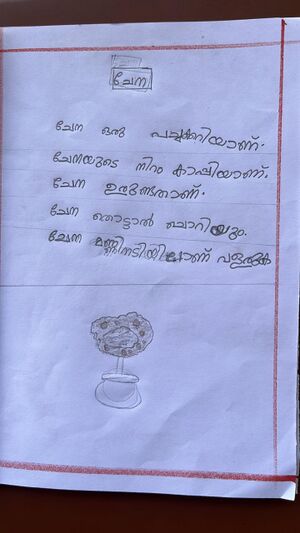 ചേന
ചേന ഒരു പച്ചക്കറിയാണ്.
ചേനയുടെ നിറം കാപ്പിയാണ്.
ചേന ഉരുണ്ടതാണ്.
ചേന തൊട്ടാൽ ചൊറിയും.
ചേന മണ്ണിനടിയിലാണ് വളരുക